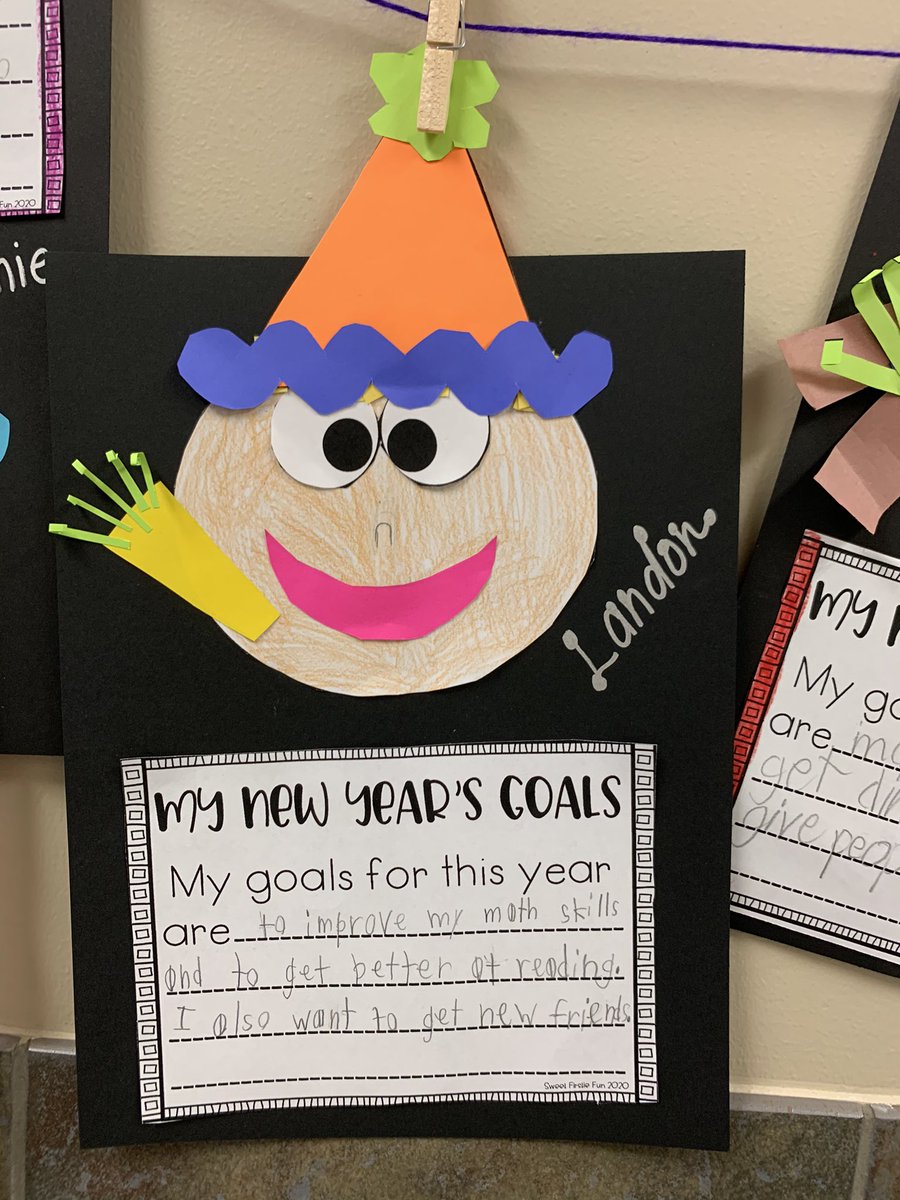 Fun 2020
nie
Landon
MY NEW YEAR'S GOALS
My goals for this year
are to improve my math skills
and to get better at reading.
I also want to get new friends.
Sweet Firstie Fun 2020
MY
My go
are
get
give